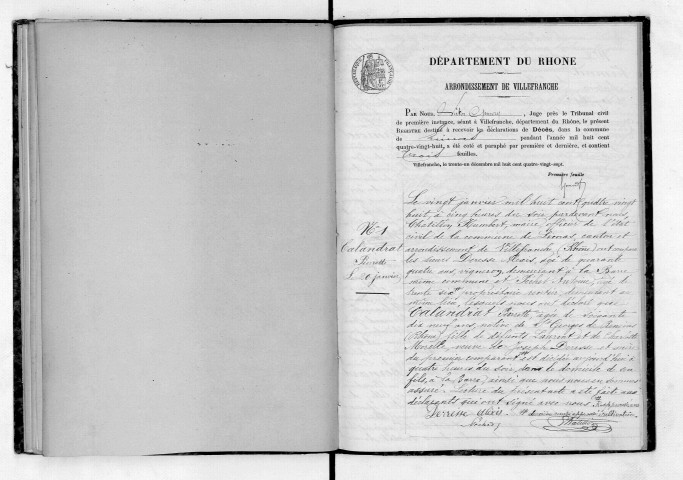 DÉPARTEMENT DU RHONE
ARRONDISSEMENT DE VILLEFRANCHE
PAR NOUS, Juge près le Tribunal civil
de première instance, séant à Villefranche, département du Rhône, le présent
REGISTRE destiné à recevoir les déclarations de Décès, dans la commune
de Limas pendant l'année mil huit cent
quatre-vingt-huit, a été coté et paraphé par première et dernière, et contient
trois feuilles.
Villefranche, le trente-un décembre mil huit cent quatre-vingt-sept.
Première feuille
Le vingt janvier mil huit cent quatre vingt
huit, à cinq heures du soir pardevant nous,
Chatillon Humbert, maire officier de l'état
civil de la commune de Limas, canton et
arrondissement de Villefranche (Rhône) ont comparu
les sieurs Alexis, âgé de quarante
quatre ans, vigneron, demeurant à la Barre
même commune et Antoine, âgé de
trente six propriétaire rentier demeurant au
même lieu, lesquels nous ont déclaré que
Calandrat Pierrette âgée de soixante
dix neuf ans, native de St Georges de Reneins
(Rhône) fille de défunts Laurent et de
veuve de Joseph et mère
du premier comparant est décédée aujourd'hui à
quatre heures du soir, dans le domicile de son
fils, à la Barre, ainsi que nous nous en sommes
assuré. Lecture du présent acte a été fait aux
déclarants qui ont signé avec nous
N° 1
Calandrat
Pierrette
le 20 janvier